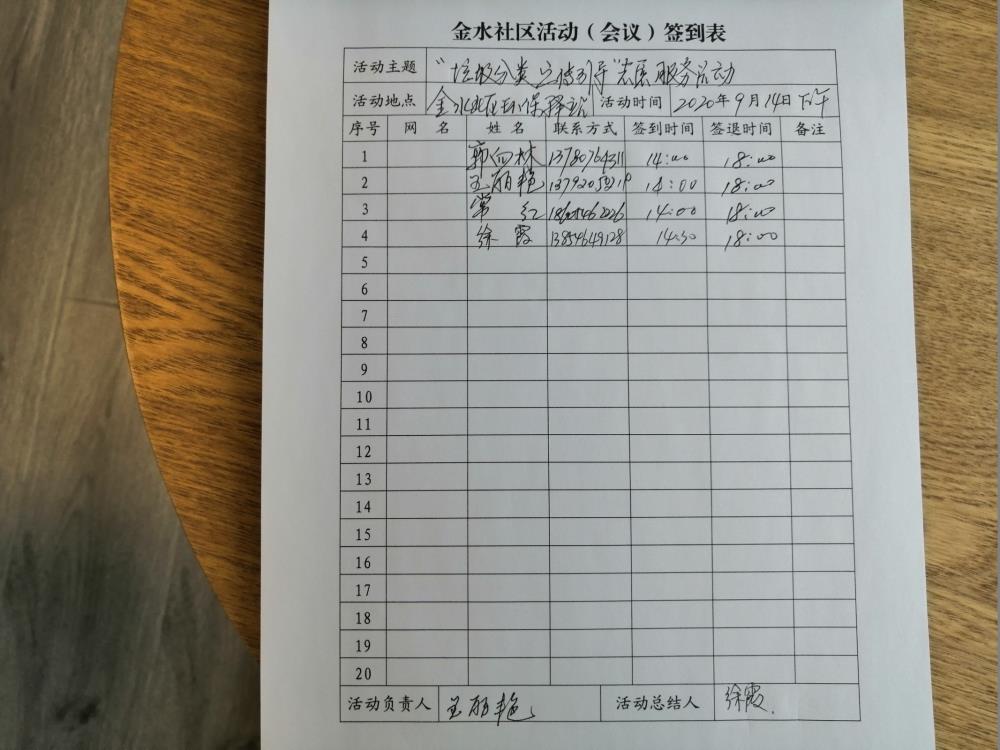 金水社区活动（会议）签到表
活动主题 "垃圾分类宣传引导"志愿服务活动
活动地点 金水社区环保驿站 活动时间 2020年9月14日下午
序号 网名 姓名 联系方式 签到时间 签退时间 备注
1 郭向林 13780764311 14:00 18:00
2 王丽艳 14:00 18:00
3 常红 14:00 18:00
4 徐霞 13854649128 14:30 18:00
5
6
7
8
9
10
11
12
13
14
15
16
17
18
19
20
活动负责人 王丽艳 活动总结人 徐霞.